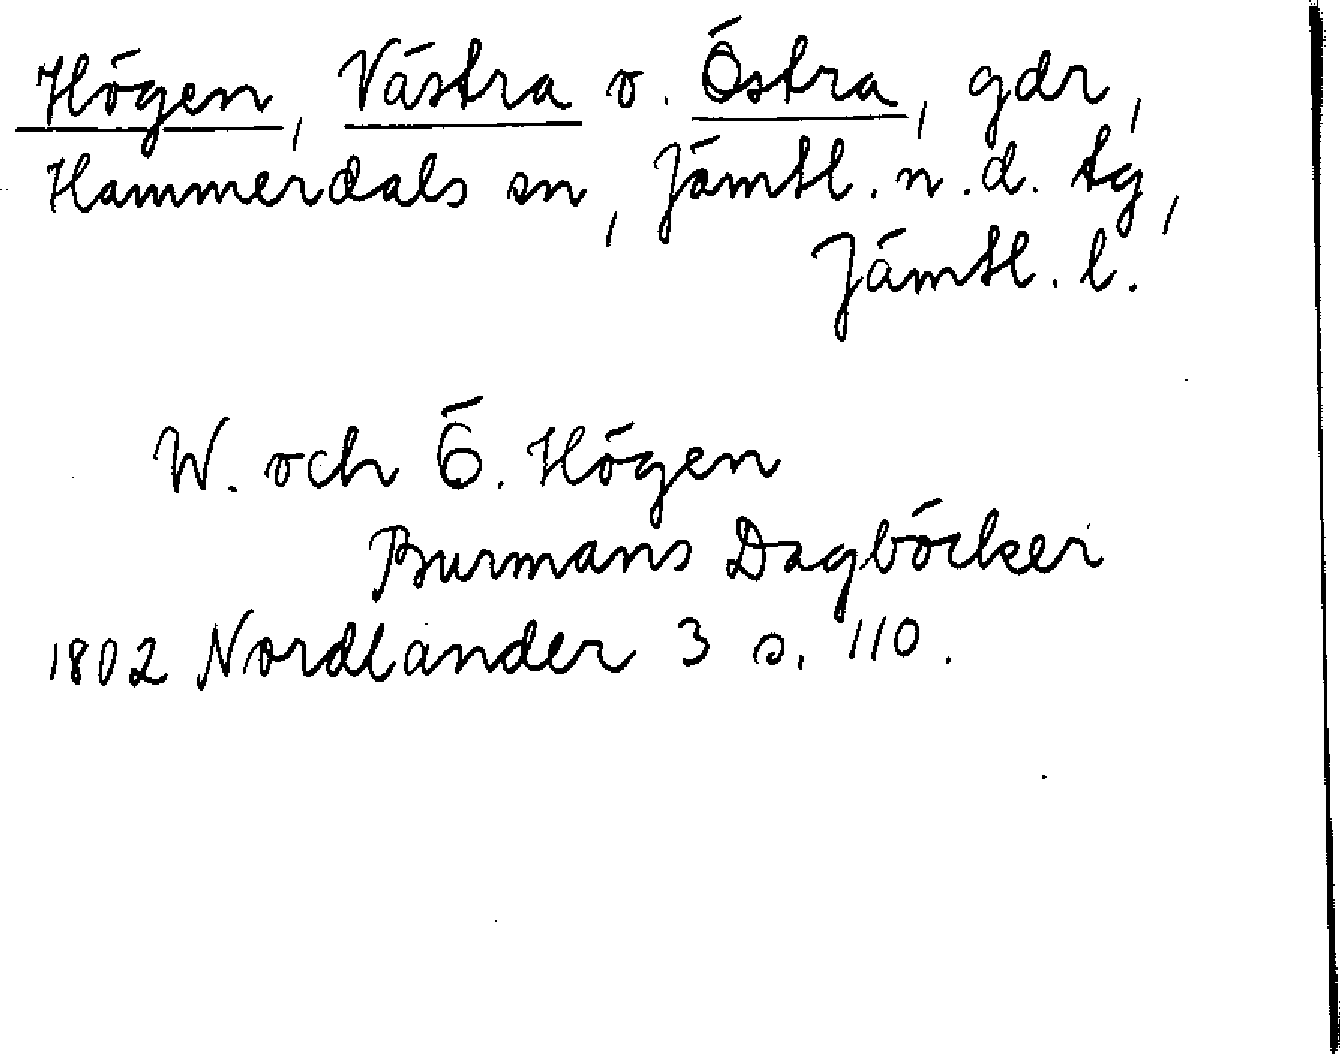 Högen, Västra o. Östra, gdr,
Hammerdals sn, Jämtl. n. d. tg,
Jämtl. l.
W. och Ö. Högen
Burmans Dagböcker
1802 Nordlander 3 s. 110.